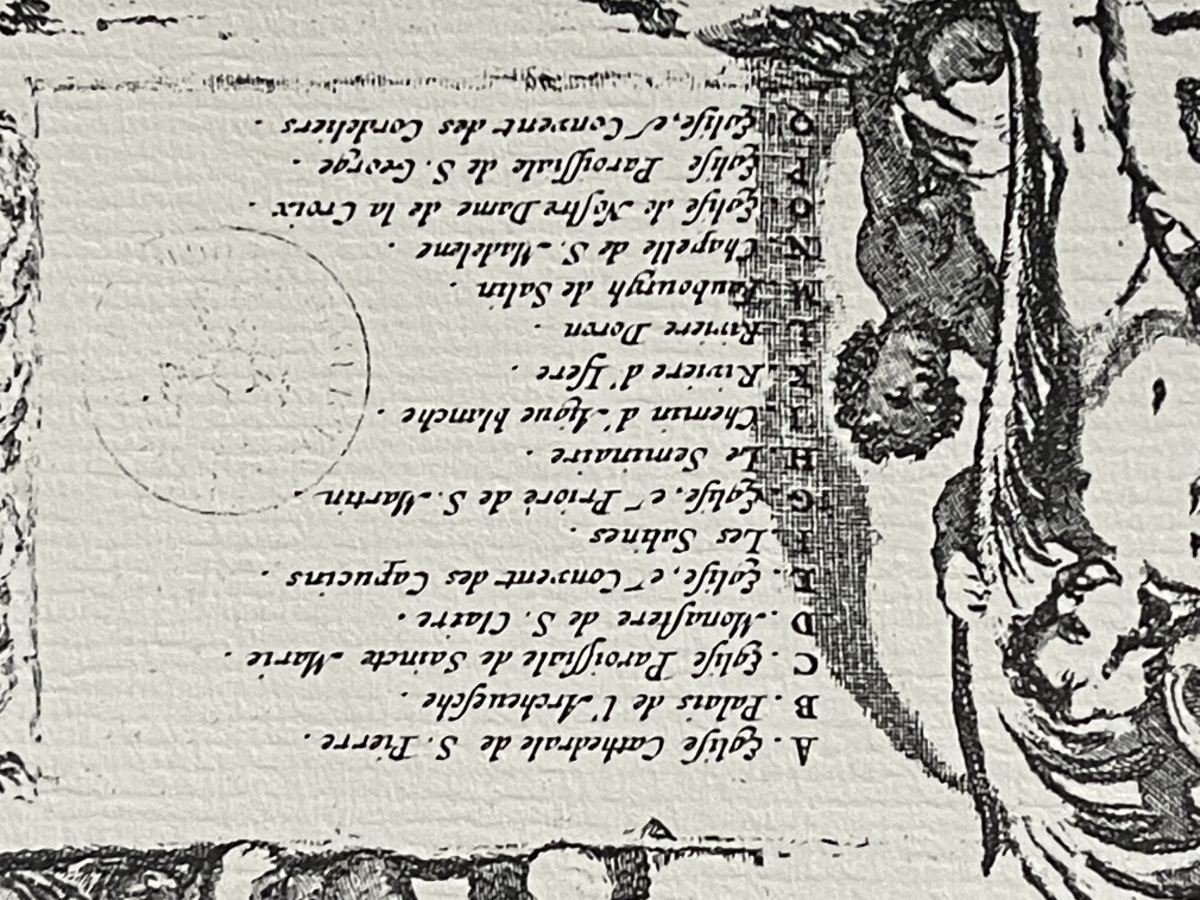 A. Egliſe Cathedrale de S. Pierre.
B. Palais de l'Archeueſche.
C. Egliſe Paroiſſiale de Saincte Marie.
D. Monaſtere de S. Claire.
E. Egliſe, et Conuent des Capucins.
F. Les Salines.
G. Egliſe, et Prioré de S. Martin.
H. Le Seminaire.
I. Chemin d'Aigue blanche.
K. Riviere d'Iſere.
L. Riviere Doron.
M. Faubourgh de Salin.
N. Chapelle de S. Madelene.
O. Egliſe de Noſtre Dame de la Croix.
P. Egliſe Paroiſſiale de S. George.
Q. Egliſe, et Conuent des Cordeliers.